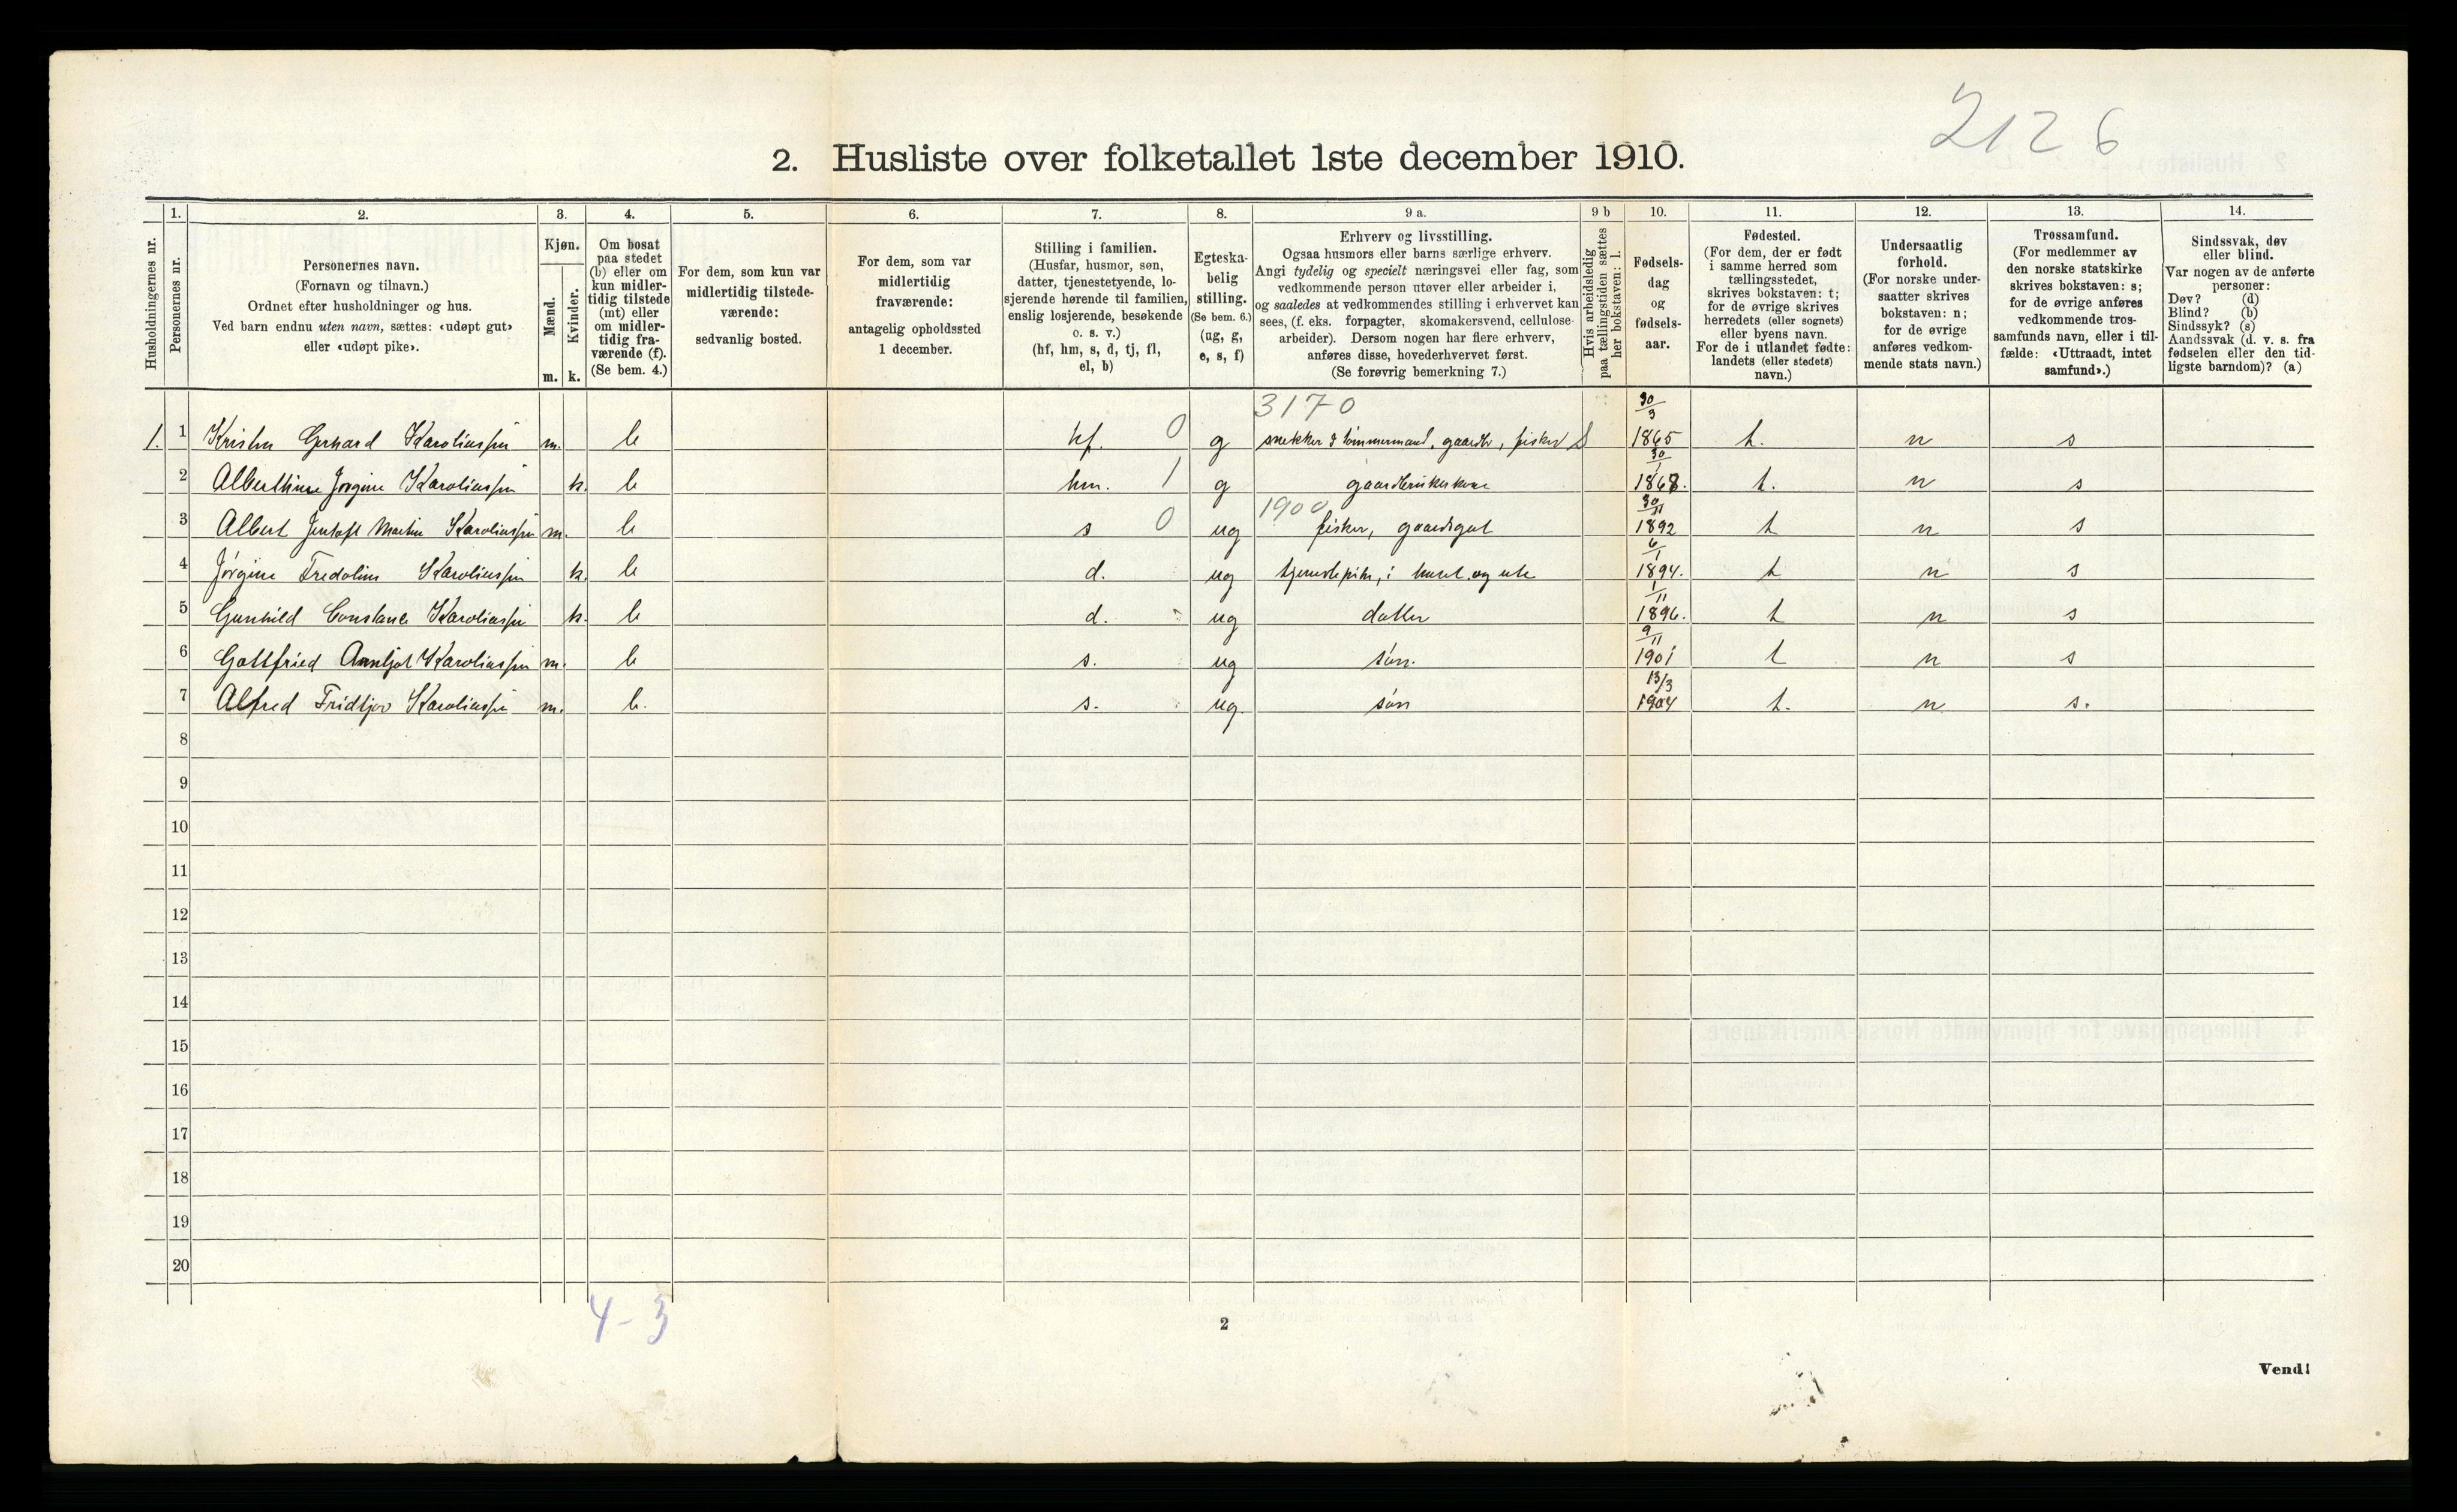 2126
2. Husliste over folketallet 1ste december 1910.
Husholdningernes nr.
1.
Personernes nr.
2.
Personernes navn.
(Fornavn og tilnavn.)
Ordnet efter husholdninger og hus.
Ved barn endnu uten navn, sættes: «udøpt gut»
eller «udøpt pike».
3.
Kjøn.
Mænd.
Kvinder.
m. k.
4.
Om bosat
paa stedet
(b) eller om
kun midler-
tidig tilstede
(mt) eller
om midler-
tidig fra-
værende (f).
(Se bem. 4.)
5.
For dem, som kun var
midlertidig tilstede-
værende:
sedvanlig bosted.
6.
For dem, som var
midlertidig
fraværende:
antagelig opholdssted
1 december.
7.
Stilling i familien.
(Husfar, husmor, søn,
datter, tjenestetyende, lo-
sjerende hørende til familien,
enslig losjerende, besøkende
o. s. v.)
(hf, hm, s, d, tj, fl,
el, b)
8.
Egteska-
belig
stilling.
(Se bem. 6.)
(ug, g,
e, s, f)
9 a.
Erhverv og livsstilling.
Ogsaa husmors eller barns særlige erhverv.
Angi tydelig og specielt næringsvei eller fag, som
vedkommende person utøver eller arbeider i,
og saaledes at vedkommendes stilling i erhvervet kan
sees, (f. eks. forpagter, skomakersvend, cellulose-
arbeider). Dersom nogen har flere erhverv,
anføres disse, hovederhvervet først.
(Se forøvrig bemerkning 7.)
9 b
Hvis arbeidsledig
paa tællingstiden sættes
her bokstaven: l.
10.
Fødsels-
dag
og
fødsels-
aar.
11.
Fødested.
(For dem, der er født
i samme herred som
tællingsstedet,
skrives bokstaven: t;
for de øvrige skrives
herredets (eller sognets)
eller byens navn.
For de i utlandet fødte:
landets (eller stedets)
navn.)
12.
Undersaatlig
forhold.
(For norske under-
saatter skrives
bokstaven: n;
for de øvrige
anføres vedkom-
mende stats navn.)
13.
Trossamfund.
(For medlemmer av
den norske statskirke
skrives bokstaven: s;
for de øvrige anføres
vedkommende tros-
samfunds navn, eller i til-
fælde: «Uttraadt, intet
samfund».)
14.
Sindssvak, døv
eller blind.
Var nogen av de anførte
personer:
Døv? (d)
Blind? (b)
Sindssyk? (s)
Aandssvak (d. v. s. fra
fødselen eller den tid-
ligste barndom)? (a)
3170 30/3
1. 1 Gerhard Karoliussen m. b hf. 0 g snekker & tømmermand, gaardbr, fisker 1865 t. n s
30/1
2 Alberthine Jørgine Karoliussen k. b hm. 1 g gaardbrukerkone 1868. t. n s
1900 30/11
3 Albert Jentoft Martin Karoliussen m. b s 0 ug fisker, gaardsgut 1892 t n s
6/1
4 Jørgine Fredoline Karoliussen k. b d. ug tjenestepike, i huset og ute 1894. t n s
1/11
5 Gunhild Constance Karoliussen k. b d. ug datter 1896. t n s
9/11
6 Gottfried Karoliussen m. b s. ug søn. 1901 t n s
13/3
7 Alfred Fridtjov Karoliussen m. b. s. ug søn 1904 t. n s.
8
9
10
11
12
13
14
15
16
17
18
19
20
4-3
2
Vend!